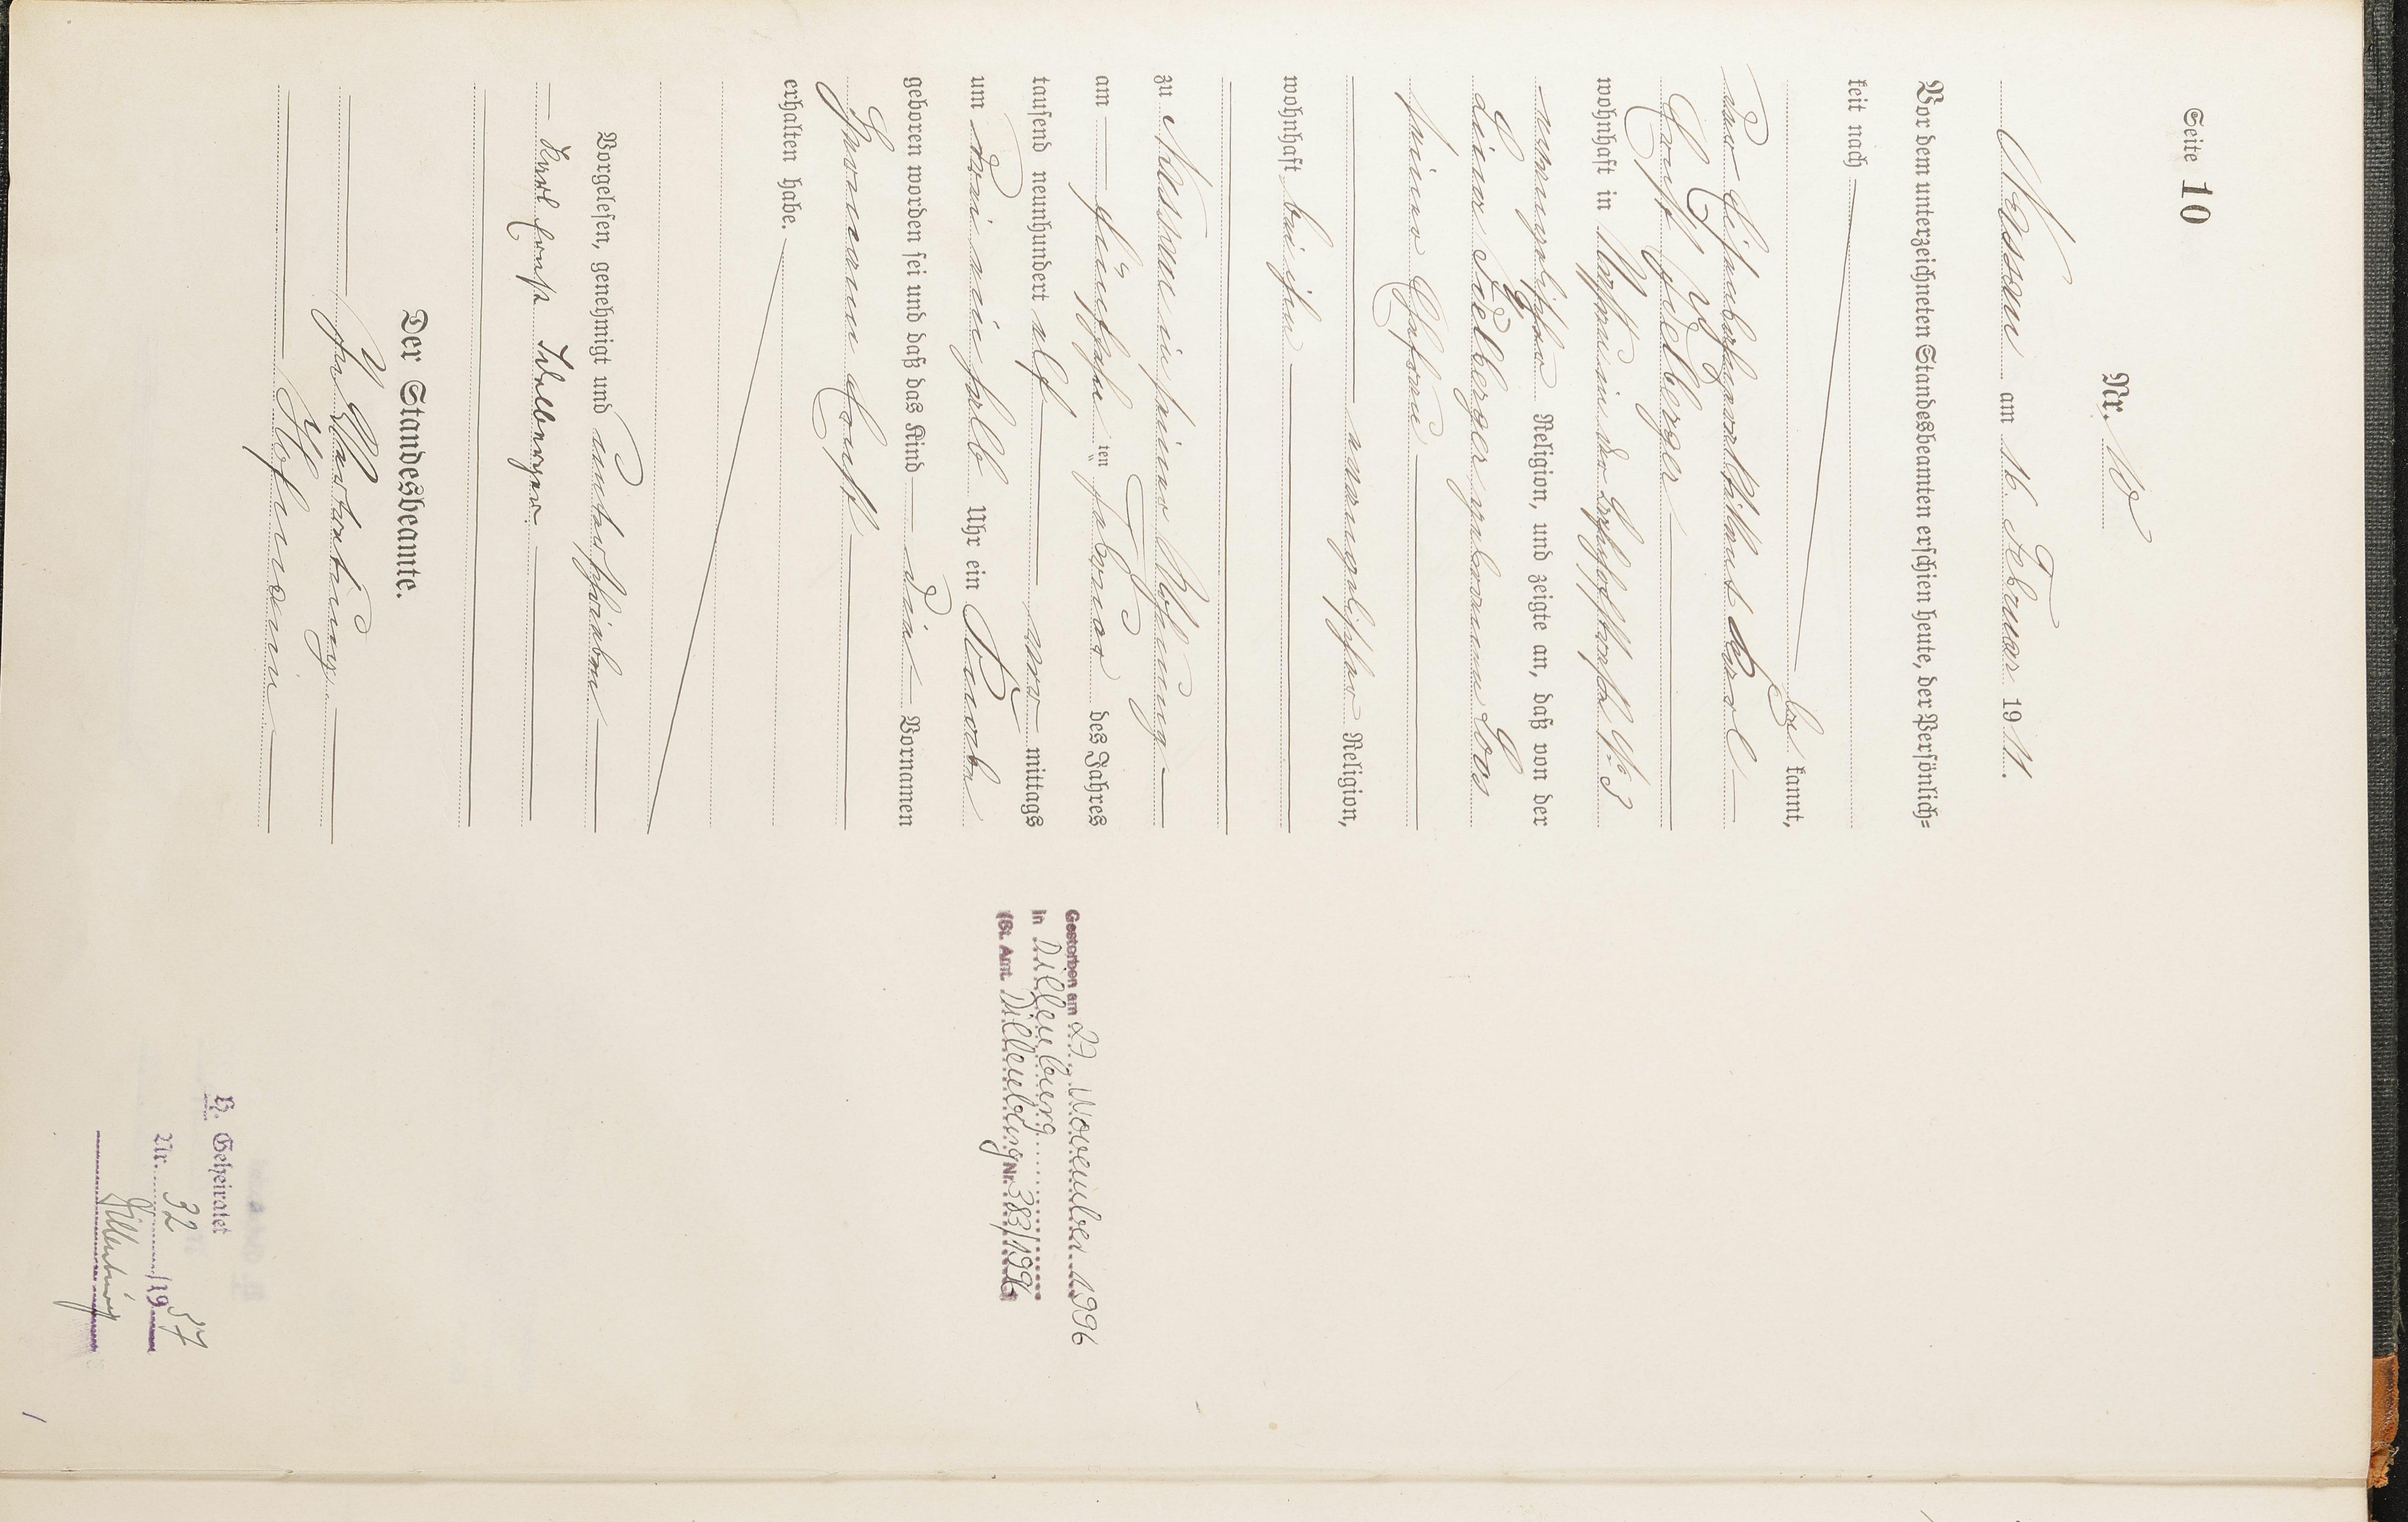 Seite 10
Nr. 10
Nassau am 16. Februar 1911.
Vor dem unterzeichneten Standesbeamten erschien heute, der Persönlich=
keit nach
be kannt,
der Eisenbahnpraktikant Karl
Ernst Idelberger
wohnhaft in Nassau in der Nr. 3
evangelischer Religion, und zeigte an, daß von der
Idelberger geborenen Loos
seiner Ehefrau
evangelischer Religion,
wohnhaft bei ihm
zu Nassau in seiner Wohnung
am fünfzehn ten Februar des Jahres
tausend neunhundert elf vor mittags
um drei ein halb Uhr ein Knabe
geboren worden sei und daß das Kind die Vornamen
Hermann Ernst
erhalten habe.
Vorgelesen, genehmigt und unterschrieben
Karl Ernst Idelberger
Der Standesbeamte.
In Vertretung
Hofmann
Gestorben am 29. November 1996
in Dillenburg
(St. Amt. Dillenburg Nr. 383/1996
H. Geheiratet
Nr. 32/1937
Dillenburg